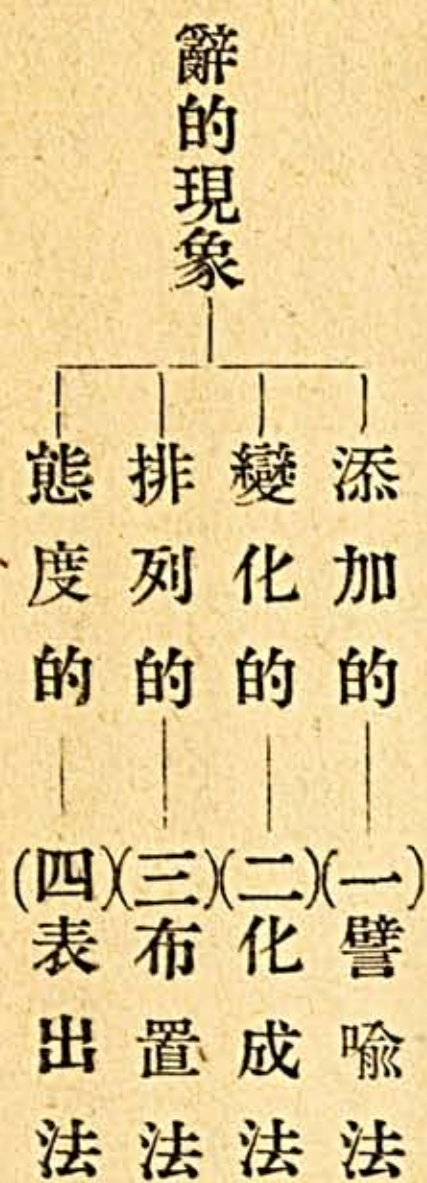 辭的現象
添加的
(一)譬喩法
變化的
(二)化成法
排列的
(三)布置法
態度的
(四)表出法